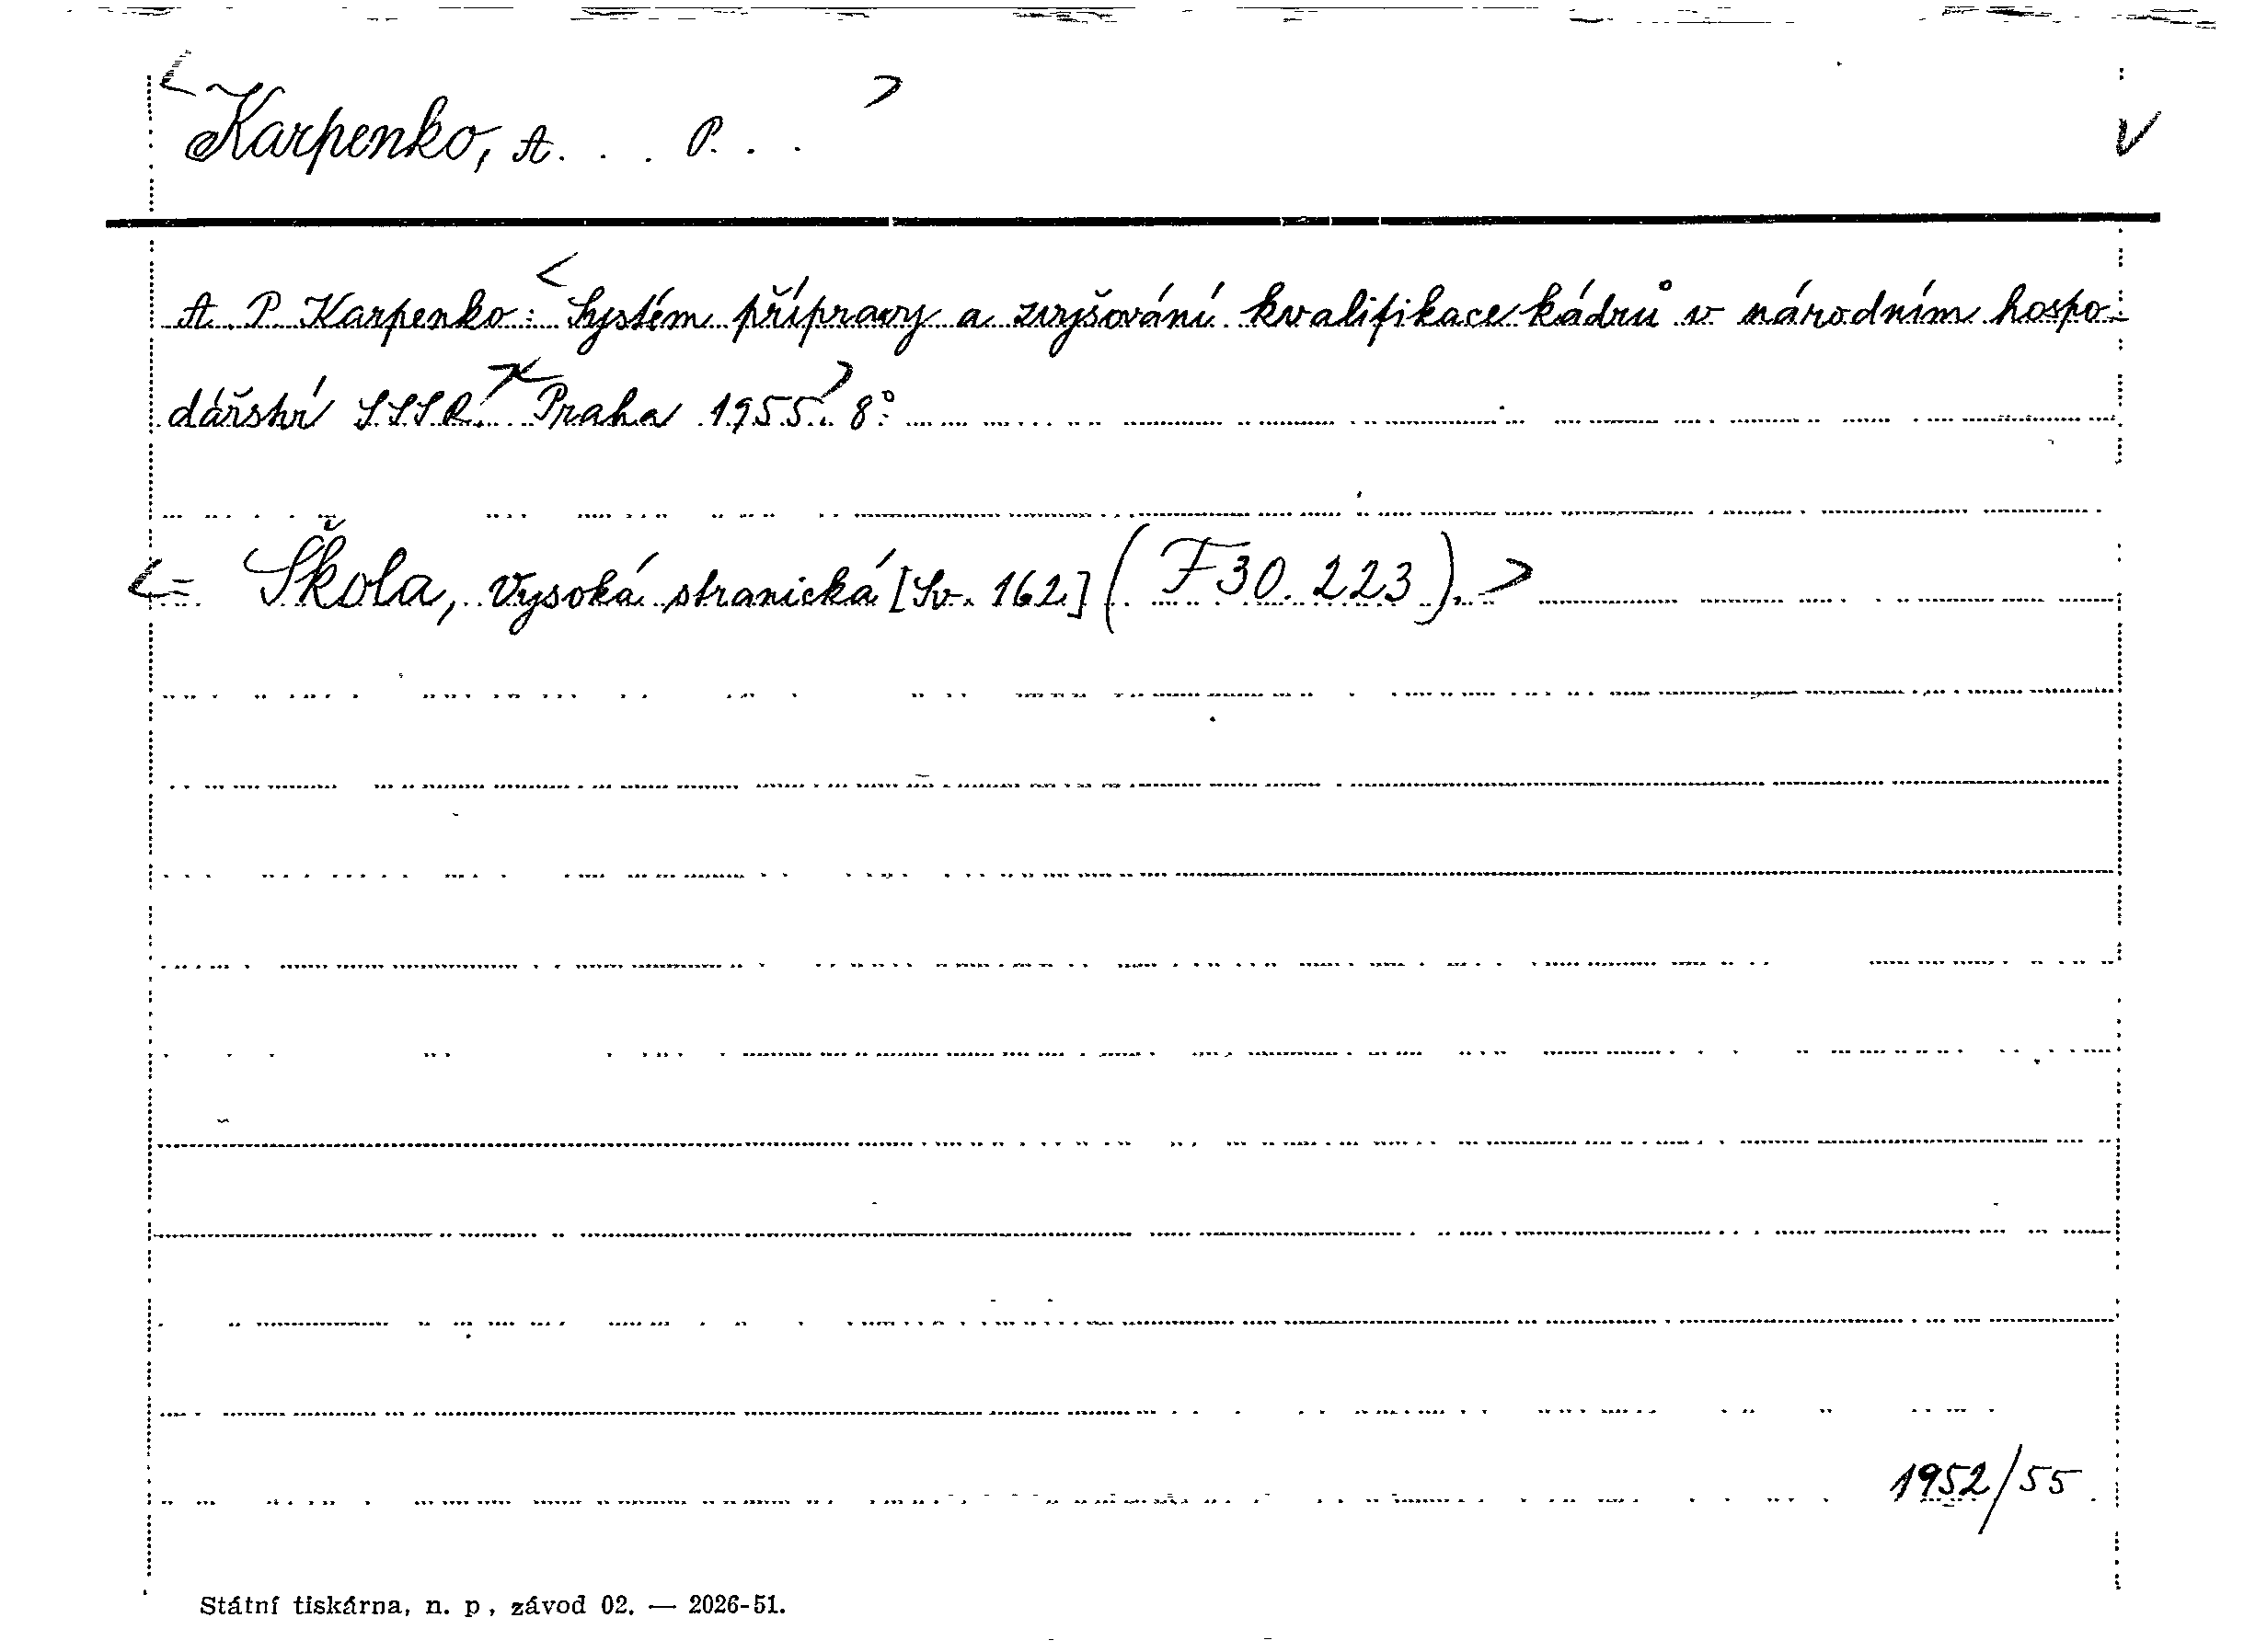 <Karpenko, A. . . P. . . > V
A. P. Karpenko: <Systém přípravy a zvyšování kvalifikace kádrů v národním hospo-
dářství SSSR. Praha 1955.> 8°.
<= Škola, Vysoká stranická [Sv. 162] (F 30.223).>
1952/55
Státní tiskárna, n. p., závod 02. — 2026-51.